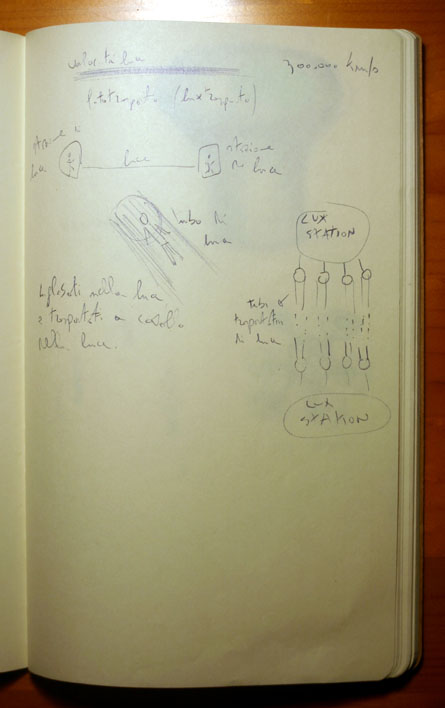 velocità luce
300.000 km/s
fototrasporto (luxtrasporto)
stazione di
luce
luce
stazione
di luce
tubo di
luce
LUX
STATION
esplosati nella luce
e trasportati a cavallo
della luce.
tubi
trasportatori
di luce
LUX
STATION